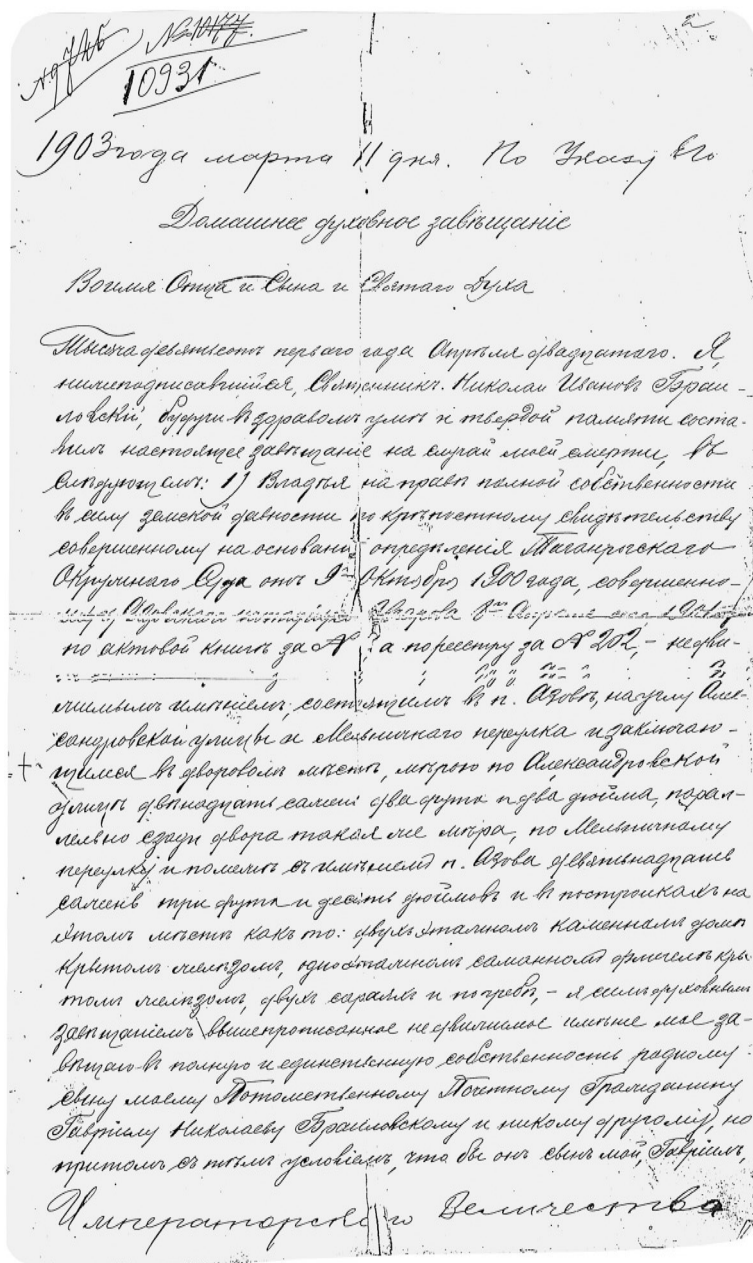 2
№ 10177.
10931
1903 года марта 11 дня. По Указу Его
Домашнее духовное завѣщаніе
Во имя Отца и Сына и Святаго Духа
Тысяча девятьсотъ перваго года Апрѣля двадцатаго. Я,
нижеподписавшійся, Священникъ Николай Ивановъ Браи-
ловскій, будучи въ здравомъ умѣ и твердой памяти соста-
вилъ настоящее завѣщаніе на случай моей смерти, въ
слѣдующемъ: 1) Владѣя на правѣ полной собственности
въ силу земской давности по крѣпостному свидѣтельству
совершенному на основаніи опредѣленія Таганрогскаго
Окружнаго Суда отъ 9го Октября 1900 года, совершенно-
по актовой книгѣ за № а по реестру за № 202, - недви-
жимымъ имѣніемъ, состоящимъ въ п. Азовѣ, на углу Алек-
сандровской улицы и Мельничнаго переулка и заключаю-
щимся въ дворовомъ мѣстѣ, мѣрою по Александровской
улицѣ двѣнадцать сажень два фута и два дюйма, парал-
лельно сзади двора такая же мѣра, по Мельничному
переулку и помежъ съ имѣніемъ п. Азова девятьнадцать
сажень три фута и десять дюймовъ и въ постройкахъ на
этомъ мѣстѣ какъ то: двухъэтажномъ каменномъ домѣ
крытомъ желѣзомъ, одноэтажномъ саманномъ флигелѣ кры-
томъ желѣзомъ, двухъ сараяхъ и погребѣ, - я симъ духовнымъ
завѣщаніемъ вышепрописанное недвижимое имѣніе мое за-
вѣщаю въ полную и единственную собственность родному
сыну моему Потомственному Почетному Гражданину
Гавріилу Николаеву Браиловскому и никому другому, но
притомъ съ тѣмъ условіемъ, что бы онъ сынъ мой, Гавріилъ,
Императорскаго Величества